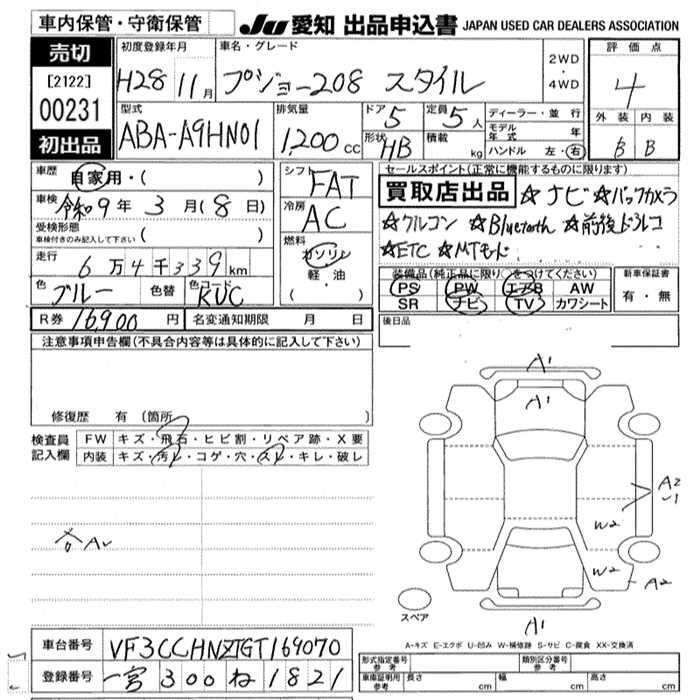 車内保管・守衛保管
JU 愛知 出品申込書 JAPAN USED CAR DEALERS ASSOCIATION
売切
[2122]
00231
初出品
初度登録年月
H28 11月
車名・グレード
プジョー208 スタイル
2WD
・
4WD
評価点
4
外装 内装
B B
型式
ABA-A9HN01
排気量
1,200 cc
ドア
5
定員
5人
形状
HB
積載
kg
ディーラー・並行
モデル年式 年
ハンドル 左・右
車歴
自家用・( )
車検
令和9年 3月(8日)
受検形態
車検付きのみ記入して下さい ( )
走行
6万4千339km
色
ブルー
色替
色コード
KUC
シフト
FAT
冷房
AC
燃料
ガソリン
軽・油
( ・ )
セールスポイント(正常に機能するものに限ります)
買取店出品 ☆ナビ ☆バックカメラ
☆クルコン ☆Bluetooth ☆前後ドラレコ
☆ETC ☆MTモード
装備品(純正品に限り○をつけてください)
PS PW エアB AW
SR ナビ TV カワシート
新車保証書
有・無
R券 16,900円
名変通知期限 月 日
後日品
注意事項申告欄(不具合内容等は具体的に記入して下さい)
修復歴 有(箇所
検査員記入欄
FW キズ・飛石・ヒビ割・リペア跡・X要
内装 キズ・汚レ・コゲ・穴・スレ・キレ・破レ
A1
A1
A2
W2
W2
A2
A1
スペア
A-キズ E-エクボ U-凹み W-補修跡 S-サビ C-腐食 XX-交換済
車台番号 VF3CCHNZTGT169070
登録番号 一宮 300 ね 1821
形式指定番号 参考
類別区分番号 参考
車庫証明用 参考
長さ cm
幅 cm
高さ cm